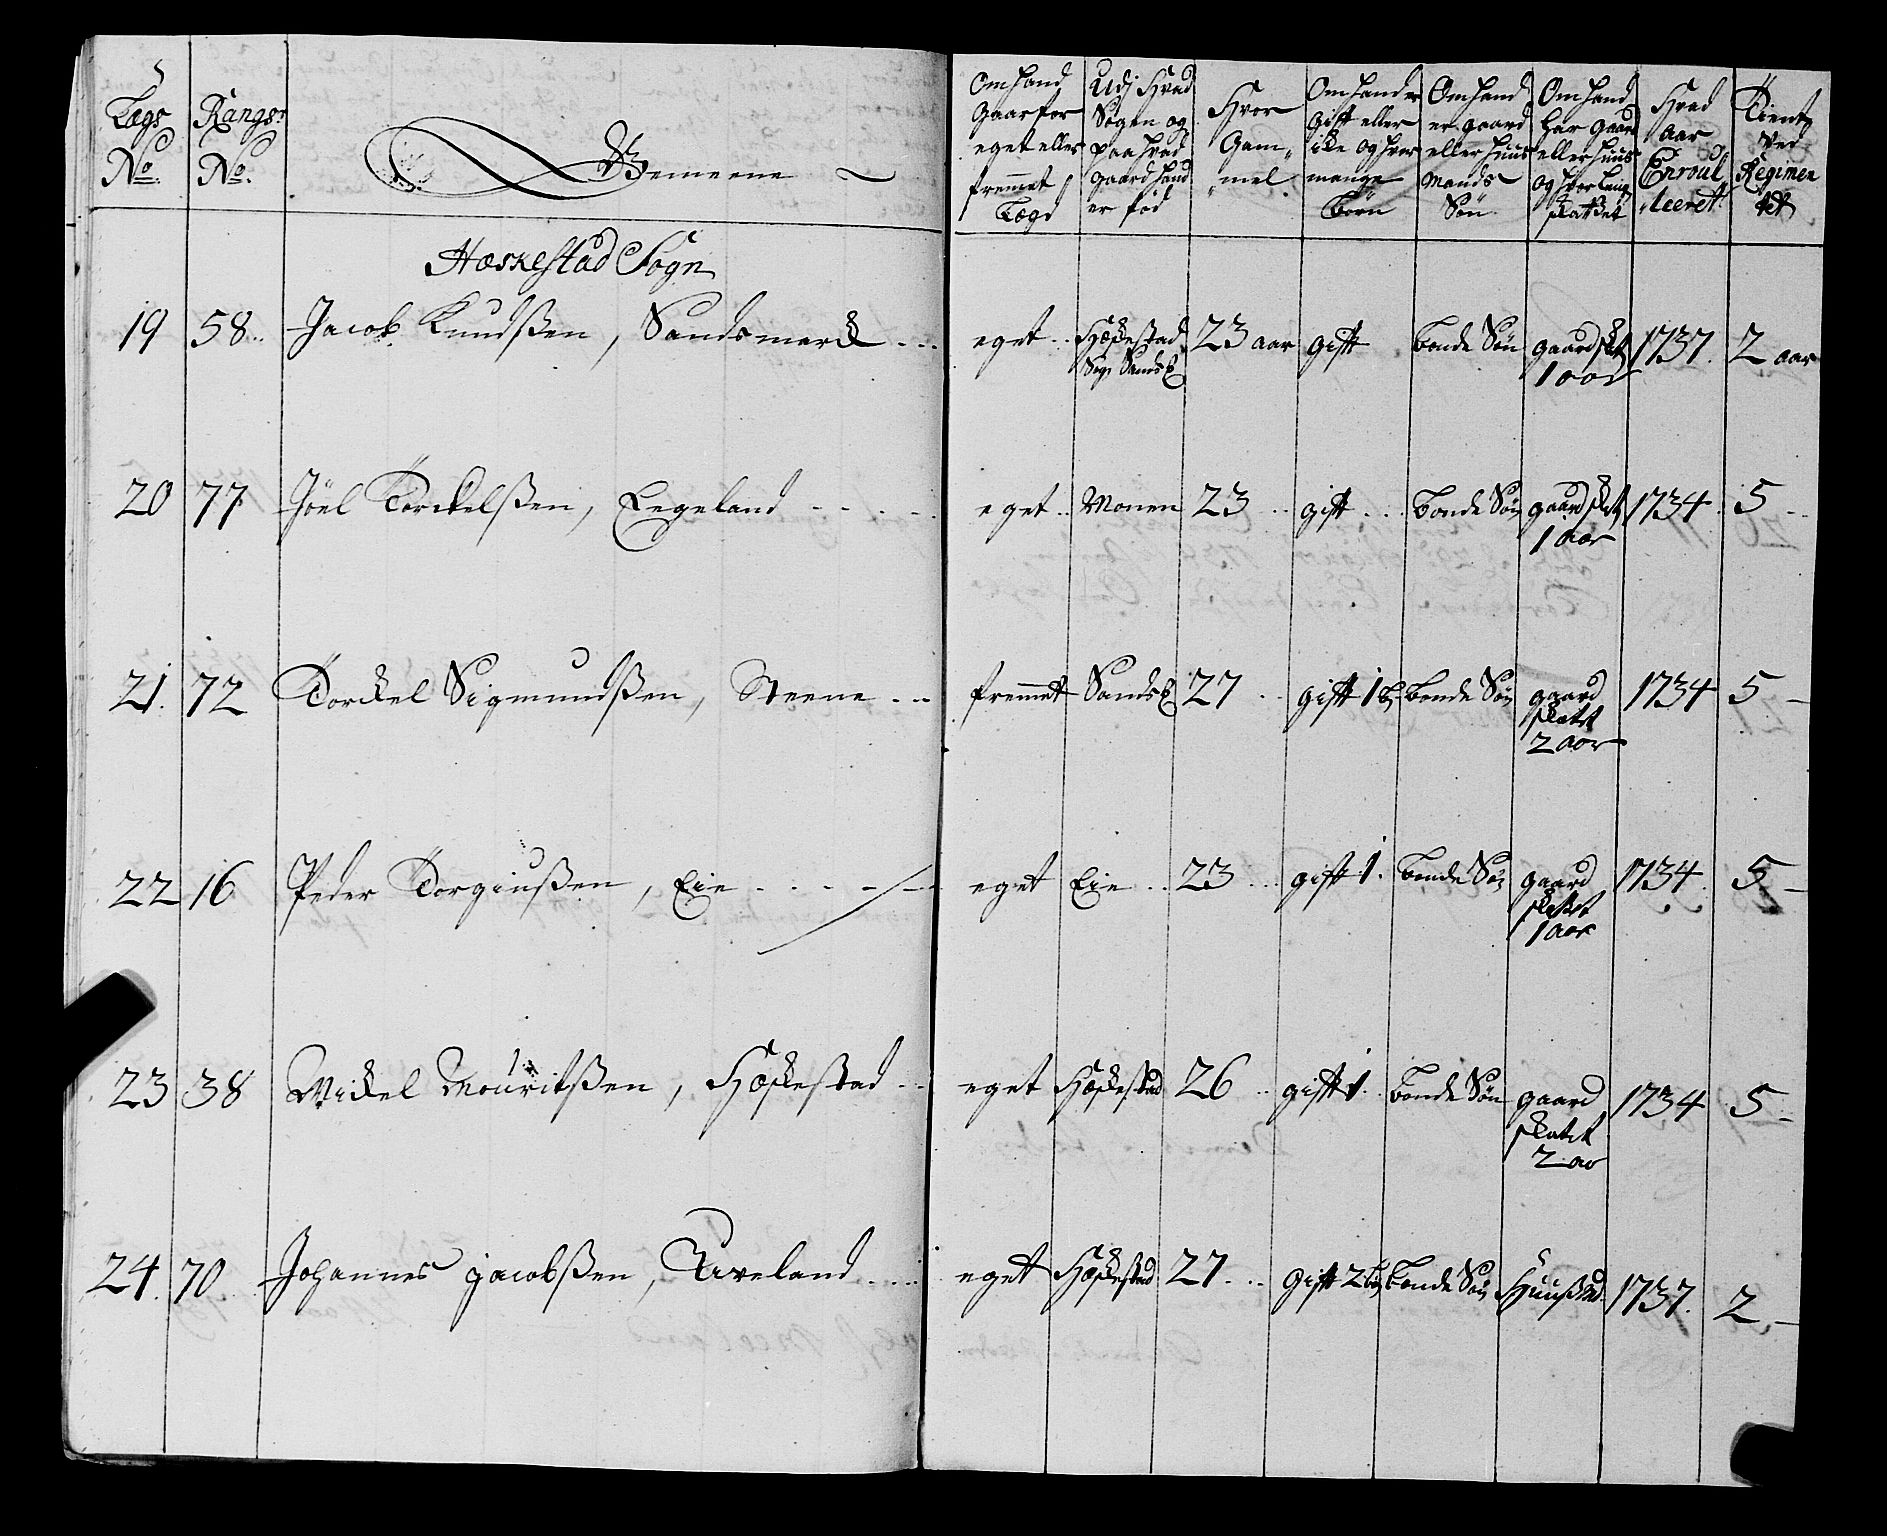 Lægs No. Rangs No. Gemeene
Om hand gaar for eget eller fremmet Lægd
Udj Hvad Sogen og paa hvad gaard hand er fød
Hvor Gammel
Om hand er gift eller ike og hvor mange børn
Om hand er gaard eller huus Mands Søn
Om hand har gaard eller huus og hvor lang skattet
Hvad aar Enroulleeret
Tient ved Regimentet
Hæskestad Sogn
19 58 Jacob Knudsßen, Sandsmark eget Hæskestad Sogn 23 aar gift bonde Søn gaard skt 1 aar 1737. 2 aar
20 77 Jöel Torckelsßen, Eegeland eget Monen 23 gift bonde Søn gaard skt 1 aar 1734. 5
21. 72 Torckel Sigmundsßen, Steene fremmet 27 gift 1 b bonde Søn gaard skatet 2 aar 1734 5
22 16 Peder Torgiusßen, Eie eget Eie 23 gift 1. bonde Søn gaard skatet 1 aar 1734. 5
23 38 Mickel Mouritsßen, Hæskestad eget Hæskestad 26 gift 1 bonde Søn gaard skatet 2 aar 1734 5
24. 70 Johannes jacobsßen, eget Hæskestad 27 gift 2 bonde Søn 1737. 2